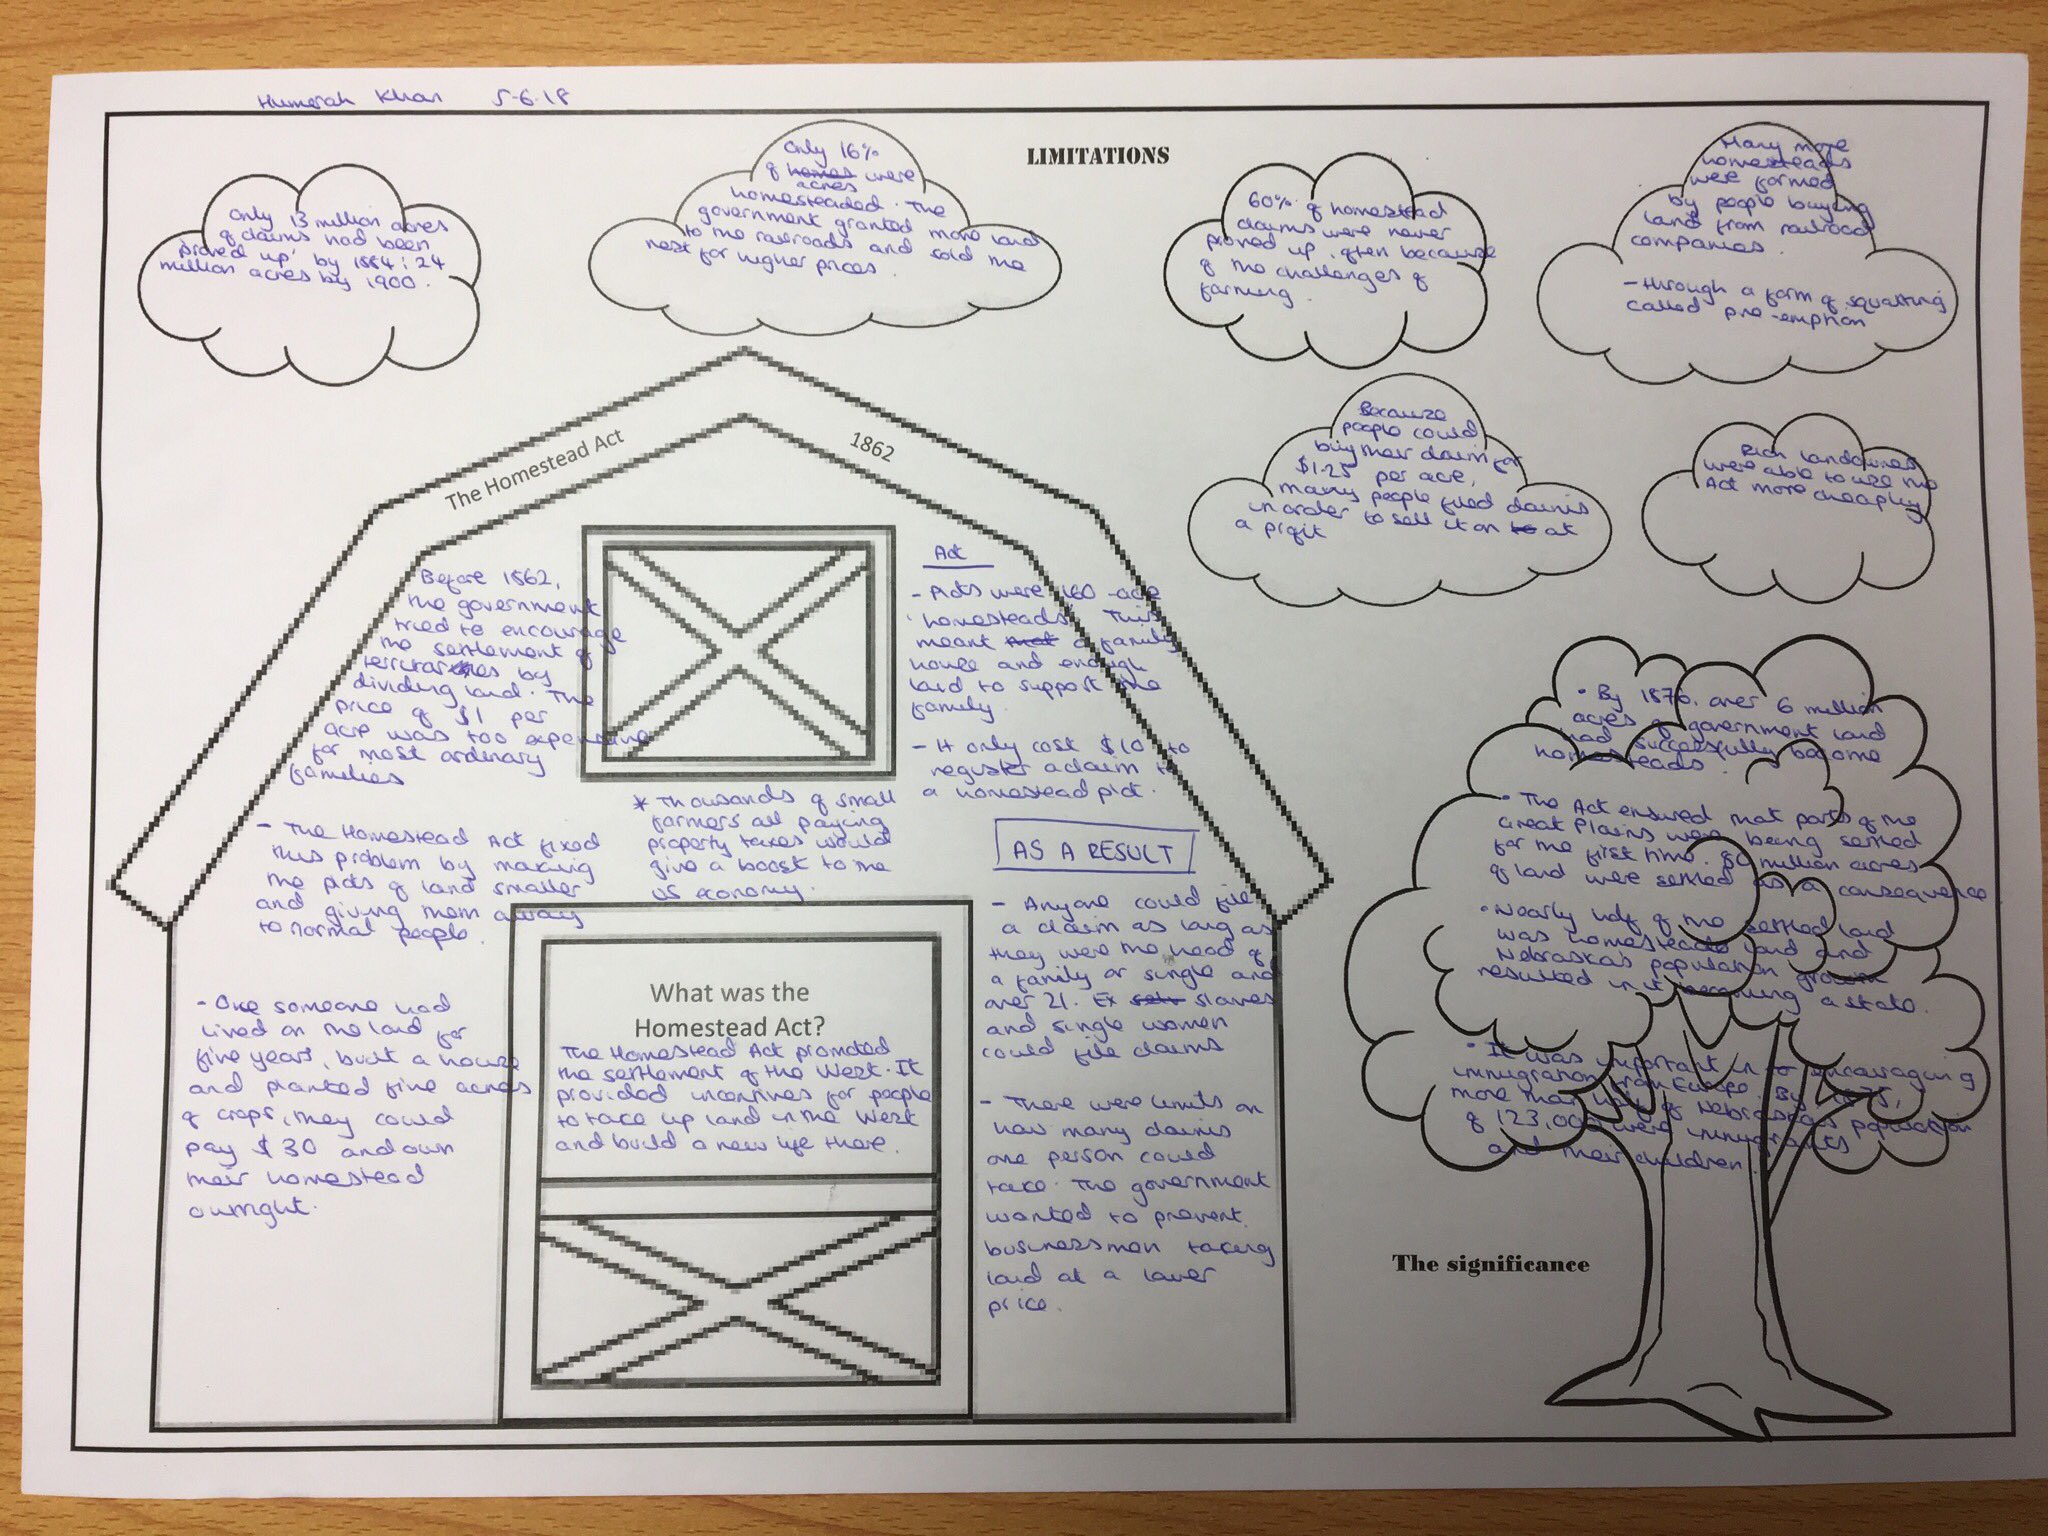 Humerah Khan 5-6-18
LIMITATIONS
Only 13 million acres
of claims had been
'proved up' by 1884; 24
million acres by 1900.
Only 16%
of homes were
acres
homesteaded. The
government granted more land
to the railroads and sold the
rest for higher prices.
60% of homestead
claims were never
proved up, often because
of the challenges of
farming.
Many more
homesteads
were formed
by people buying
land from railroad
companies.
- through a form of squatting
called pre-emption
Because
people could
buy their claim for
$1.25 per acre,
many people filed claims
in order to sell it on to at
a profit
Rich landowners
were able to use the
Act more cheaply
The Homestead Act 1862
Before 1862,
the government
tried to encourage
the settlement of
territories by
dividing land. The
price of $1 per
acre was too expensive
for most ordinary
families
- The Homestead Act fixed
this problem by making
the plots of land smaller
and giving them away
to normal people.
- One someone had
lived on the land for
five years, built a house
and planted five acres
of crops, they could
pay $30 and own
their homestead
outright.
* Thousands of small
farmers all paying
property taxes would
give a boost to the
US economy.
What was the
Homestead Act?
The Homestead Act promoted
the settlement of the West. It
provided incentives for people
to take up land in the West
and build a new life there.
Act
- Plots were 160-acre
'homesteads'. This
meant that a family
house and enough
land to support the
family.
- It only cost $10 to
register a claim to
a homestead plot.
AS A RESULT
- Anyone could file
a claim as long as
they were the head of
a family or single and
over 21. Ex slaves
and single women
could file claims
- There were limits on
how many claims
one person could
take. The government
wanted to prevent
businessmen taking
land at a lower
price.
• By 1876, over 6 million
acres of government land
had successfully become
homesteads.
• The Act ensured that parts of the
Great Plains were being settled
for the first time. 6 million acres
of land were settled as a consequence
• Nearly half of the settled land
was homesteads land and
Nebraska's population growth
resulted in it becoming a state.
• It was important in encouraging
immigration from Europe. By 1875,
more than half of Nebraska's population
of 123,000 were immigrants
and their children.
The significance